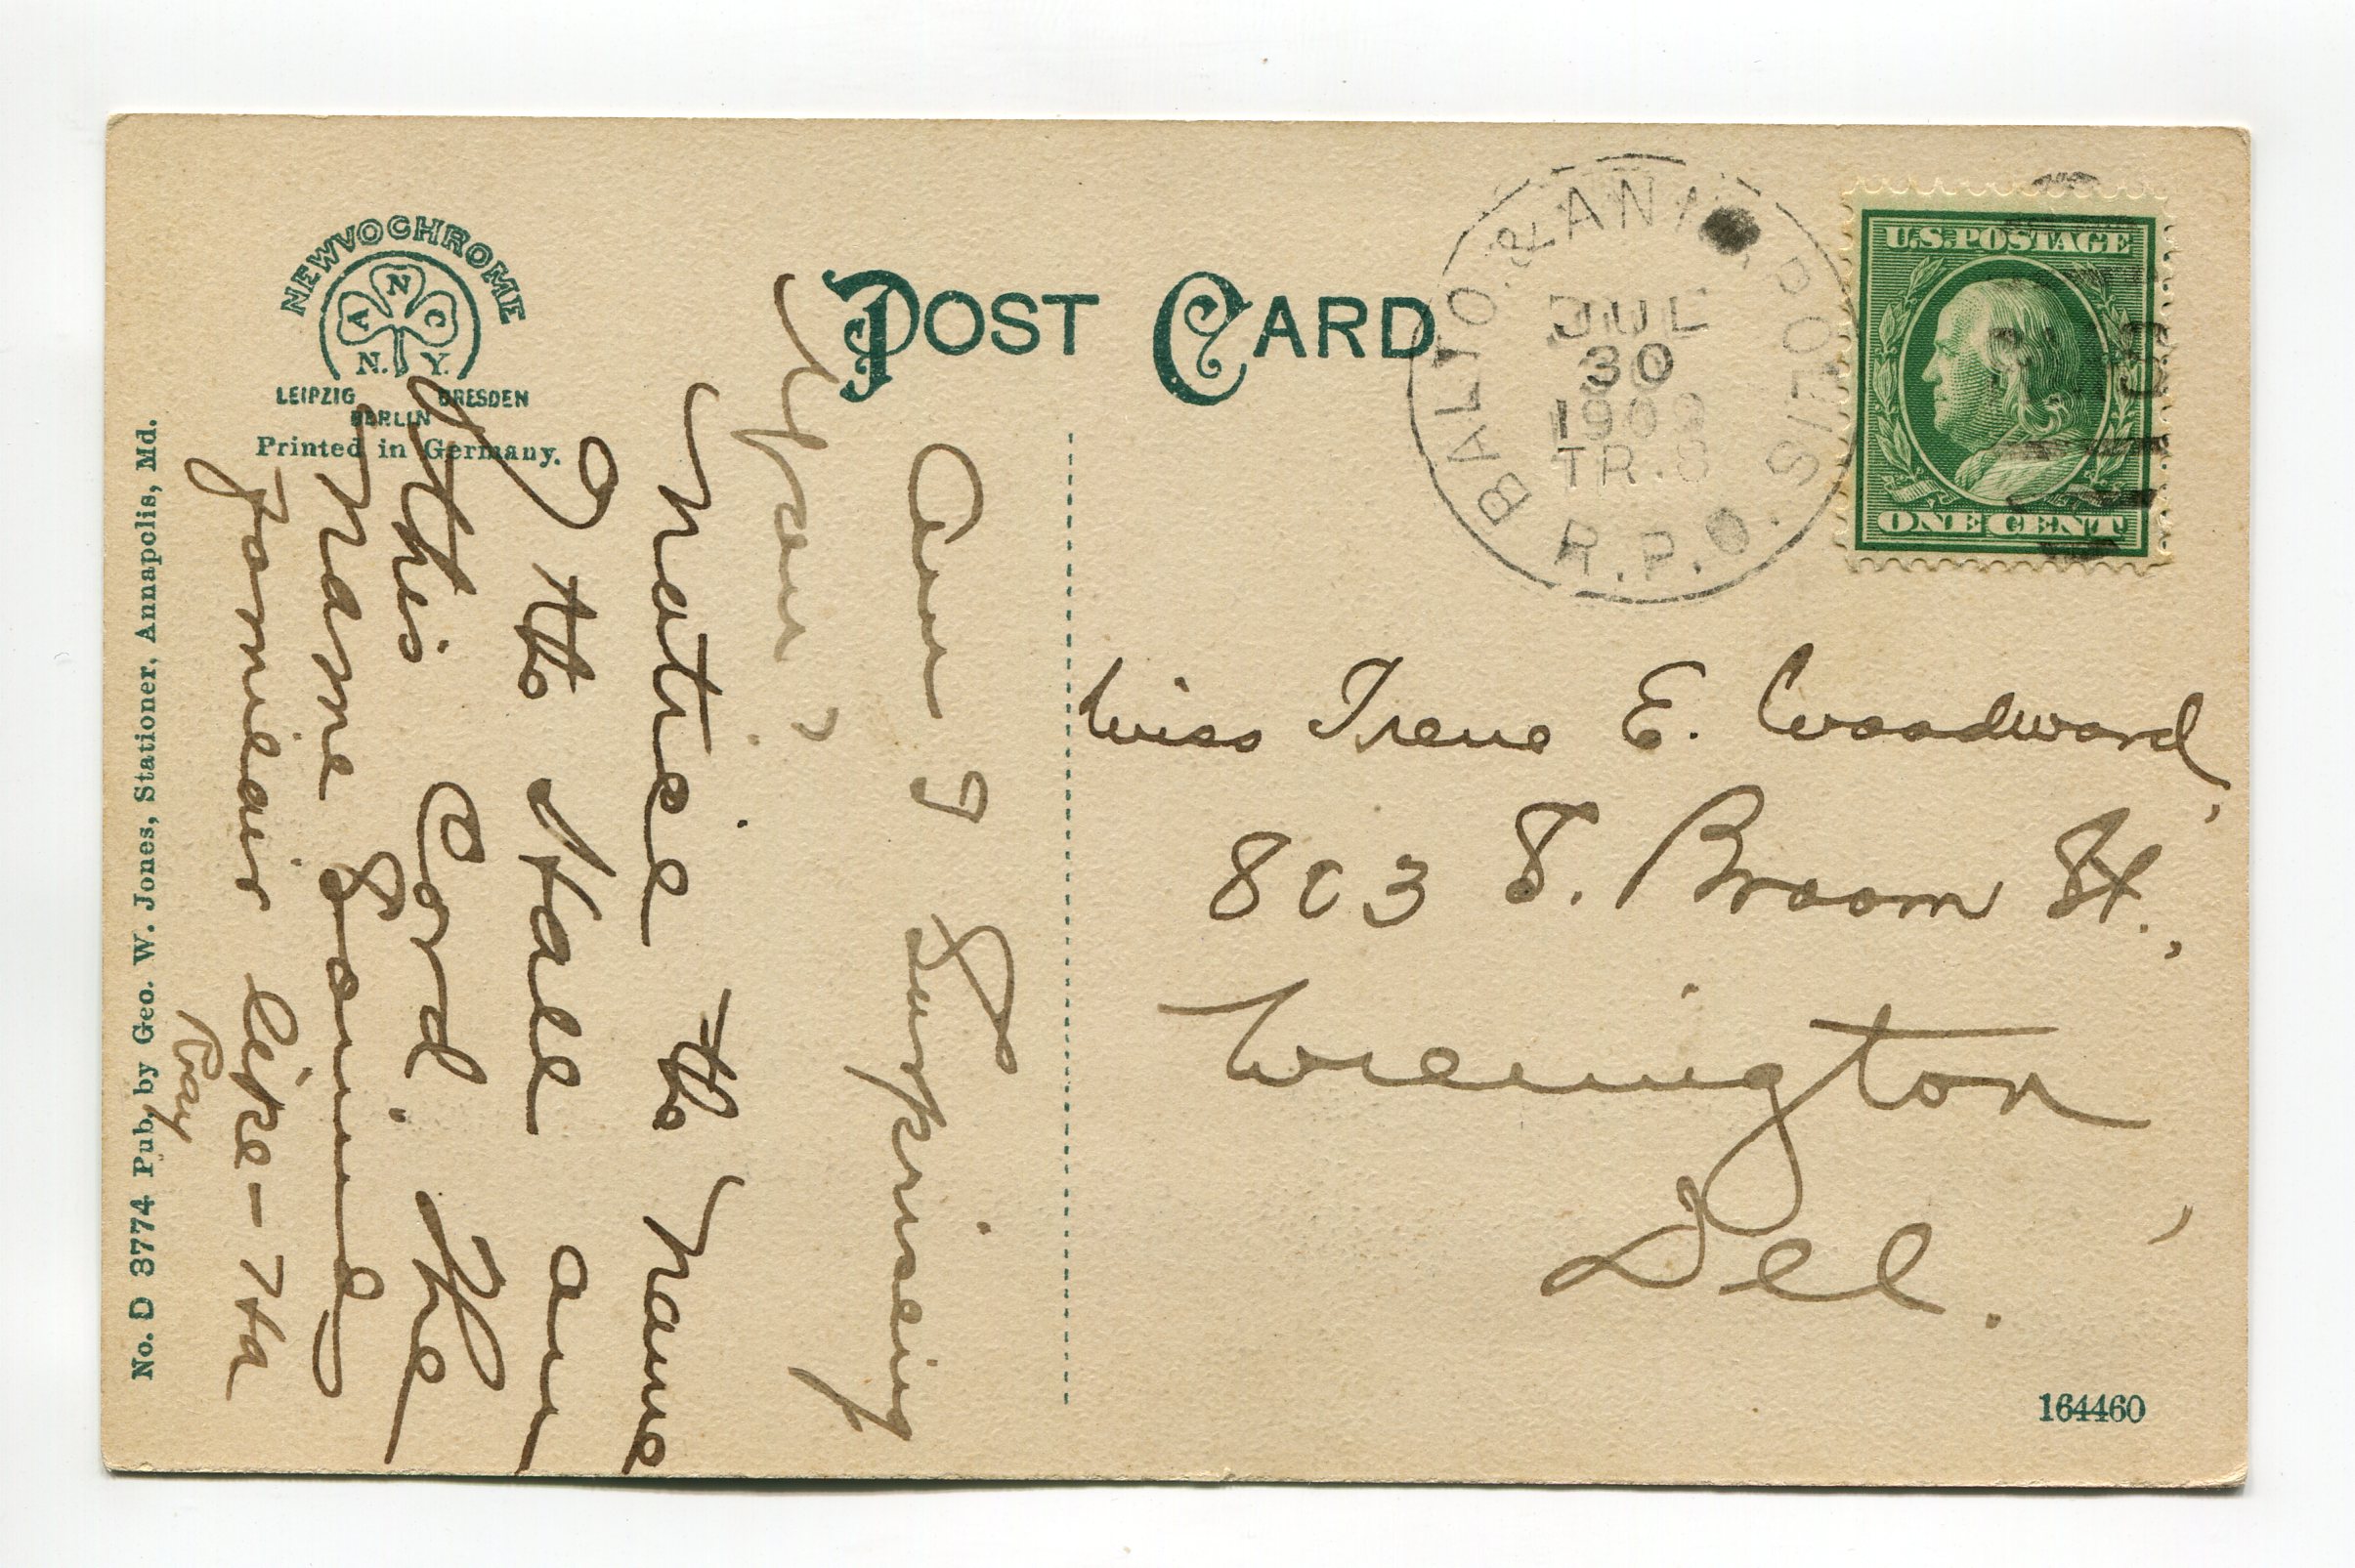 POST CARD
NEWVOCHROME
A N C
N. Y.
LEIPZIG DRESDEN
BERLIN
Printed in Germany.
No. D 3774 Pub. by Geo. W. Jones, Stationer, Annapolis, Md.
Am I surprising
you?
Notice the name
of the Hall on
this Card. The
name sound
familair like - 7ha
Ray
BALTO. & ANNAPOLIS
JUL
30
1909
TR. 8
R.P.O.
U.S. POSTAGE
ONE CENT
Miss Irene E. Woodward,
803 Broom St.,
Wilmington,
Del.
164460